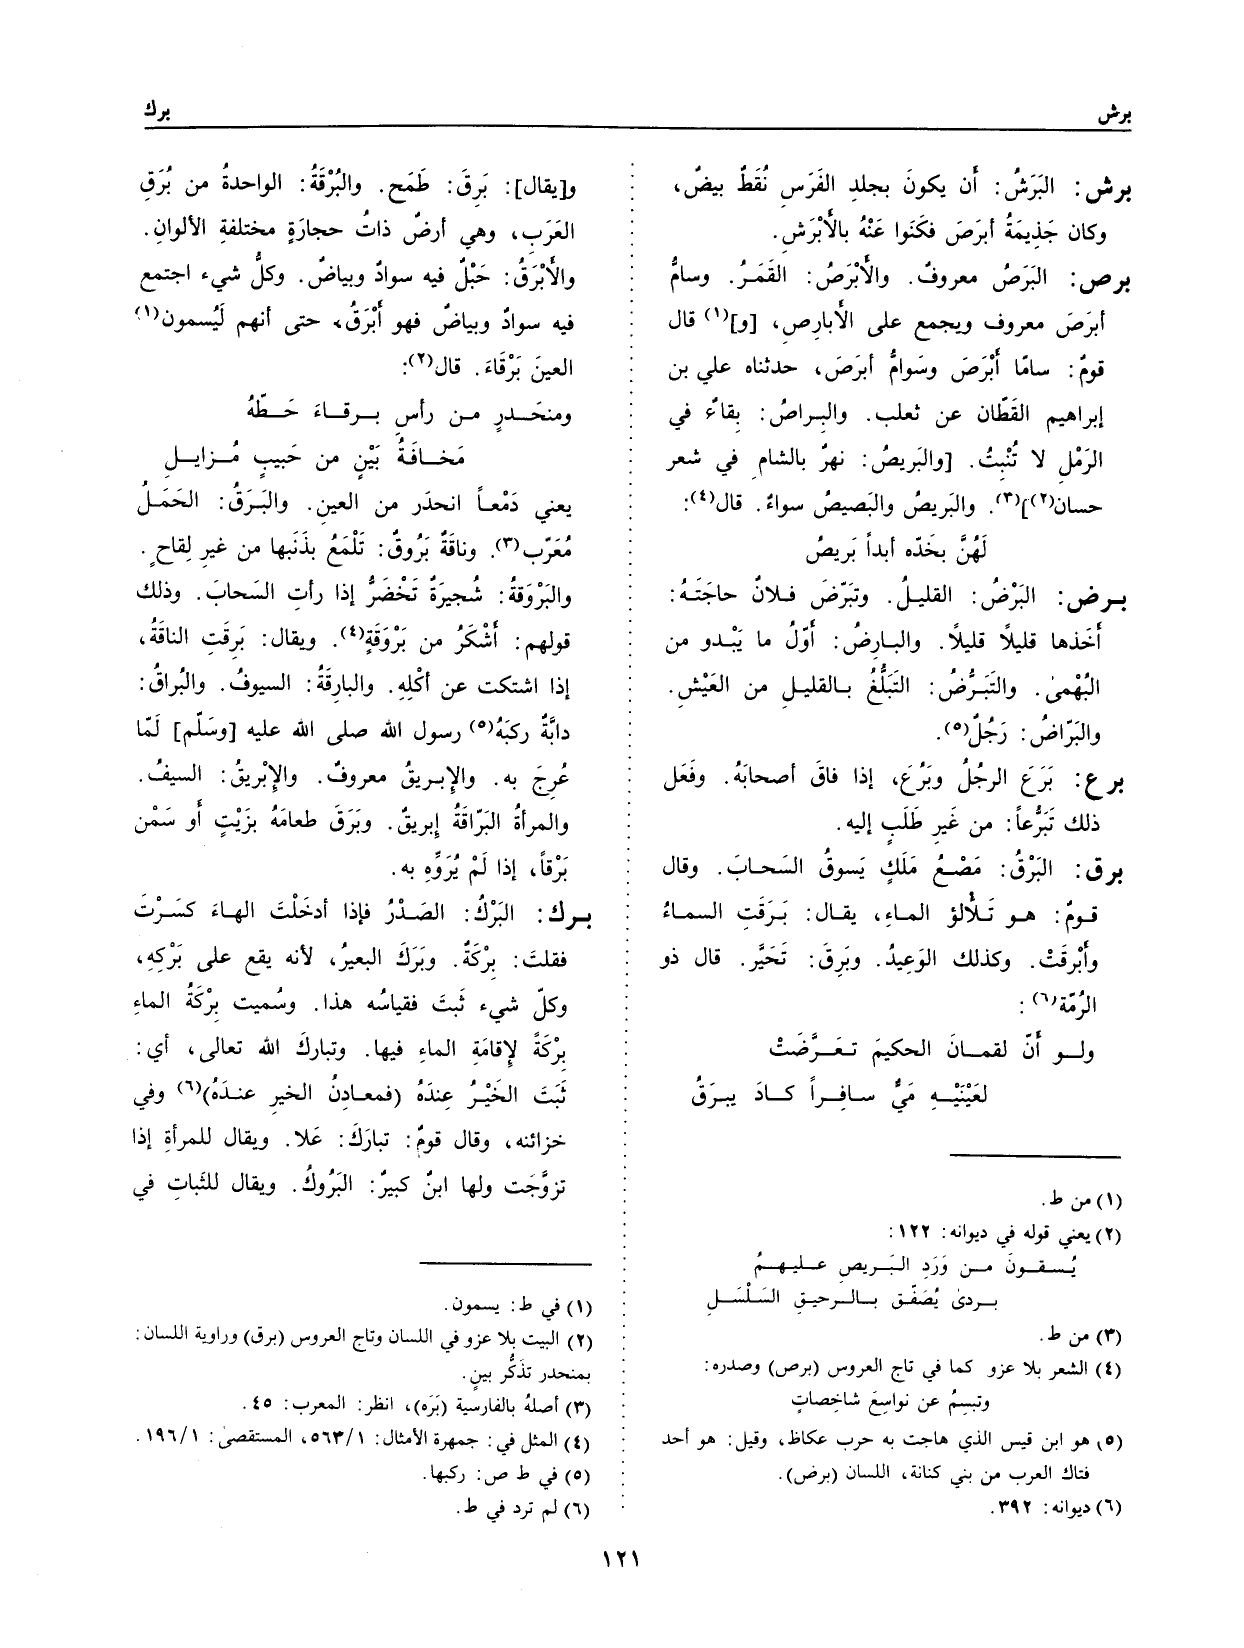 برش
برك
برش: البَرَشُ: أن يكونَ بجلدِ الفَرَسِ نُقَطٌ بيضٌ،
وكان جَذِيمَةُ أبرَصَ فكَنَوا عَنْهُ بالأَبْرَشِ.
برص: البَرَصُ معروفٌ. والأَبْرَصُ: القَمَرُ. وسامُّ
أبرَصَ معروف ويجمع على الأَبارِصِ، [و](١) قال
قومٌ: سامّا أَبْرَصَ وسَوامُّ أبرَصَ، حدثناه علي بن
إبراهيم القَطّان عن ثعلب. والبِراصُ: بِقاعٌ في
الرَمْلِ لا تُنْبِتُ. [والبَريصُ: نهرٌ بالشام في شعر
حسان(٢)](٣). والبَريصُ والبَصيصُ سواءٌ. قال(٤):
لَهُنَّ بخَدّه أبداً بَريصُ
برض: البَرْضُ: القليلُ. وتبَرَّضَ فلانٌ حاجَتَهُ:
أخَذها قليلاً قليلاً. والبارِضُ: أوّلُ ما يَبْدو من
البُهْمىٰ. والتَبَرُّضُ: التَبَلُّغُ بالقليلِ من العَيْشِ.
والبَرّاضُ: رَجُلٌ(٥).
برع: بَرَعَ الرجُلُ وبَرُعَ، إذا فاقَ أصحابَهُ. وفَعَل
ذلك تَبَرُّعاً: من غَيرِ طَلَبٍ إليه.
برق: البَرْقُ: مَصْعُ مَلَكٍ يَسوقُ السَحابَ. وقال
قومٌ: هو تَلألؤ الماءِ، يقال: بَرَقَتِ السماءُ
وأَبْرقَتْ. وكذلك الوَعِيدُ. وبَرِقَ: تَحَيَّر. قال ذو
الرُمّة(٦) :
ولو أنّ لقمانَ الحكيمَ تعَرَّضَتْ
لعَيْنَيْهِ مَيٌّ سافِراً كادَ يبرَقُ
(١) من ط.
(٢) يعني قوله في ديوانه: ١٢٢:
يُسقونَ من وَرَدِ البَريصِ عليهمُ
بردىٰ يُصَفّق بالرحيقِ السَلْسَلِ
(٣) من ط.
(٤) الشعر بلا عزو كما في تاج العروس (برص) وصدره:
وتبسِمُ عن نواسِعَ شاخِصاتٍ
(٥) هو ابن قيس الذي هاجت به حرب عكاظ، وقيل: هو أحد
فتاك العرب من بني كنانة، اللسان (برض).
(٦) ديوانه: ٣٩٢.
و[يقال]: بَرِقَ: طَمَح. والبُرْقَةُ: الواحدةُ من بُرَقِ
العَرَبِ، وهي أرضٌ ذاتُ حجارَةٍ مختلفةِ الألوانِ.
والأَبْرَقُ: حَبْلٌ فيه سوادٌ وبياضٌ. وكلُّ شيء اجتمع
فيه سوادٌ وبياضٌ فهو أَبْرَقُ، حتى أنهم لَيُسمون(١)
العينَ بَرْقَاءَ. قال(٢):
ومنحَدرٍ من رأس برقاءَ حَطّهُ
مَخافَةُ بَيْنٍ من حَبيبٍ مُزايلِ
يعني دَمْعاً انحدَر من العين. والبَرَقُ: الحَمَلُ
مُعَرّب(٣). وناقَةٌ بَرُوقٌ: تَلْمَعُ بذَنَبها من غيرِ لِقاحٍ.
والبَرْوَقةُ: شُجيرَةٌ تَخْضَرُّ إذا رأتِ السَحابَ. وذلك
قولهم: أَشْكَرُ من بَرْوَقَةٍ(٤). ويقال: بَرِقَتِ الناقَةُ،
إذا اشتكت عن أكْلِهِ. والبارِقَةُ: السيوفُ. والبُراقُ:
دابَّةٌ ركبَهُ(٥) رسول الله صلى الله عليه [وسَلّم] لمّا
عُرِجَ به. والإبريقُ معروفٌ. والإبْريقُ: السيفُ.
والمرأةُ البَرّاقَةُ إبريقٌ. وبَرَقَ طعامَهُ بزَيْتٍ أو سَمْنٍ
بَرْقاً، إذا لَمْ يُرَوِّهِ به.
برك: البَرْكُ: الصَدْرُ فإذا أدخَلْتَ الهاءَ كَسَرْتَ
فقلتَ: بِرْكَةٌ. وبَرَكَ البعيرُ، لأنه يقع على بَرْكِهِ،
وكلّ شيء ثَبتَ فقياسُه هذا. وسُميت بِرْكَةُ الماءِ
بِرْكَةً لإقامَةِ الماءِ فيها. وتبارَكَ الله تعالى، أي:
ثَبَتَ الخَيْرُ عِندَهُ (فمعادِنُ الخيرِ عندَهُ)(٦) وفي
خزائنه، وقال قومٌ: تبارَكَ: عَلا. ويقال للمرأةِ إذا
تزوَّجَت ولها ابنٌ كبيرٌ: البَرُوكُ. ويقال للثَباتِ في
(١) في ط: يسمون.
(٢) البيت بلا عزو في اللسان وتاج العروس (برق) وراوية اللسان:
بمنحدر تذَكُّر بينٍ.
(٣) أصلهُ بالفارسية (بَرَه)، انظر: المعرب: ٤٥.
(٤) المثل في: جمهرة الأمثال: ٥٦٣/١، المستقصىٰ: ١٩٦/١.
(٥) في ط ص: ركبها.
(٦) لم ترد في ط.
١٢١